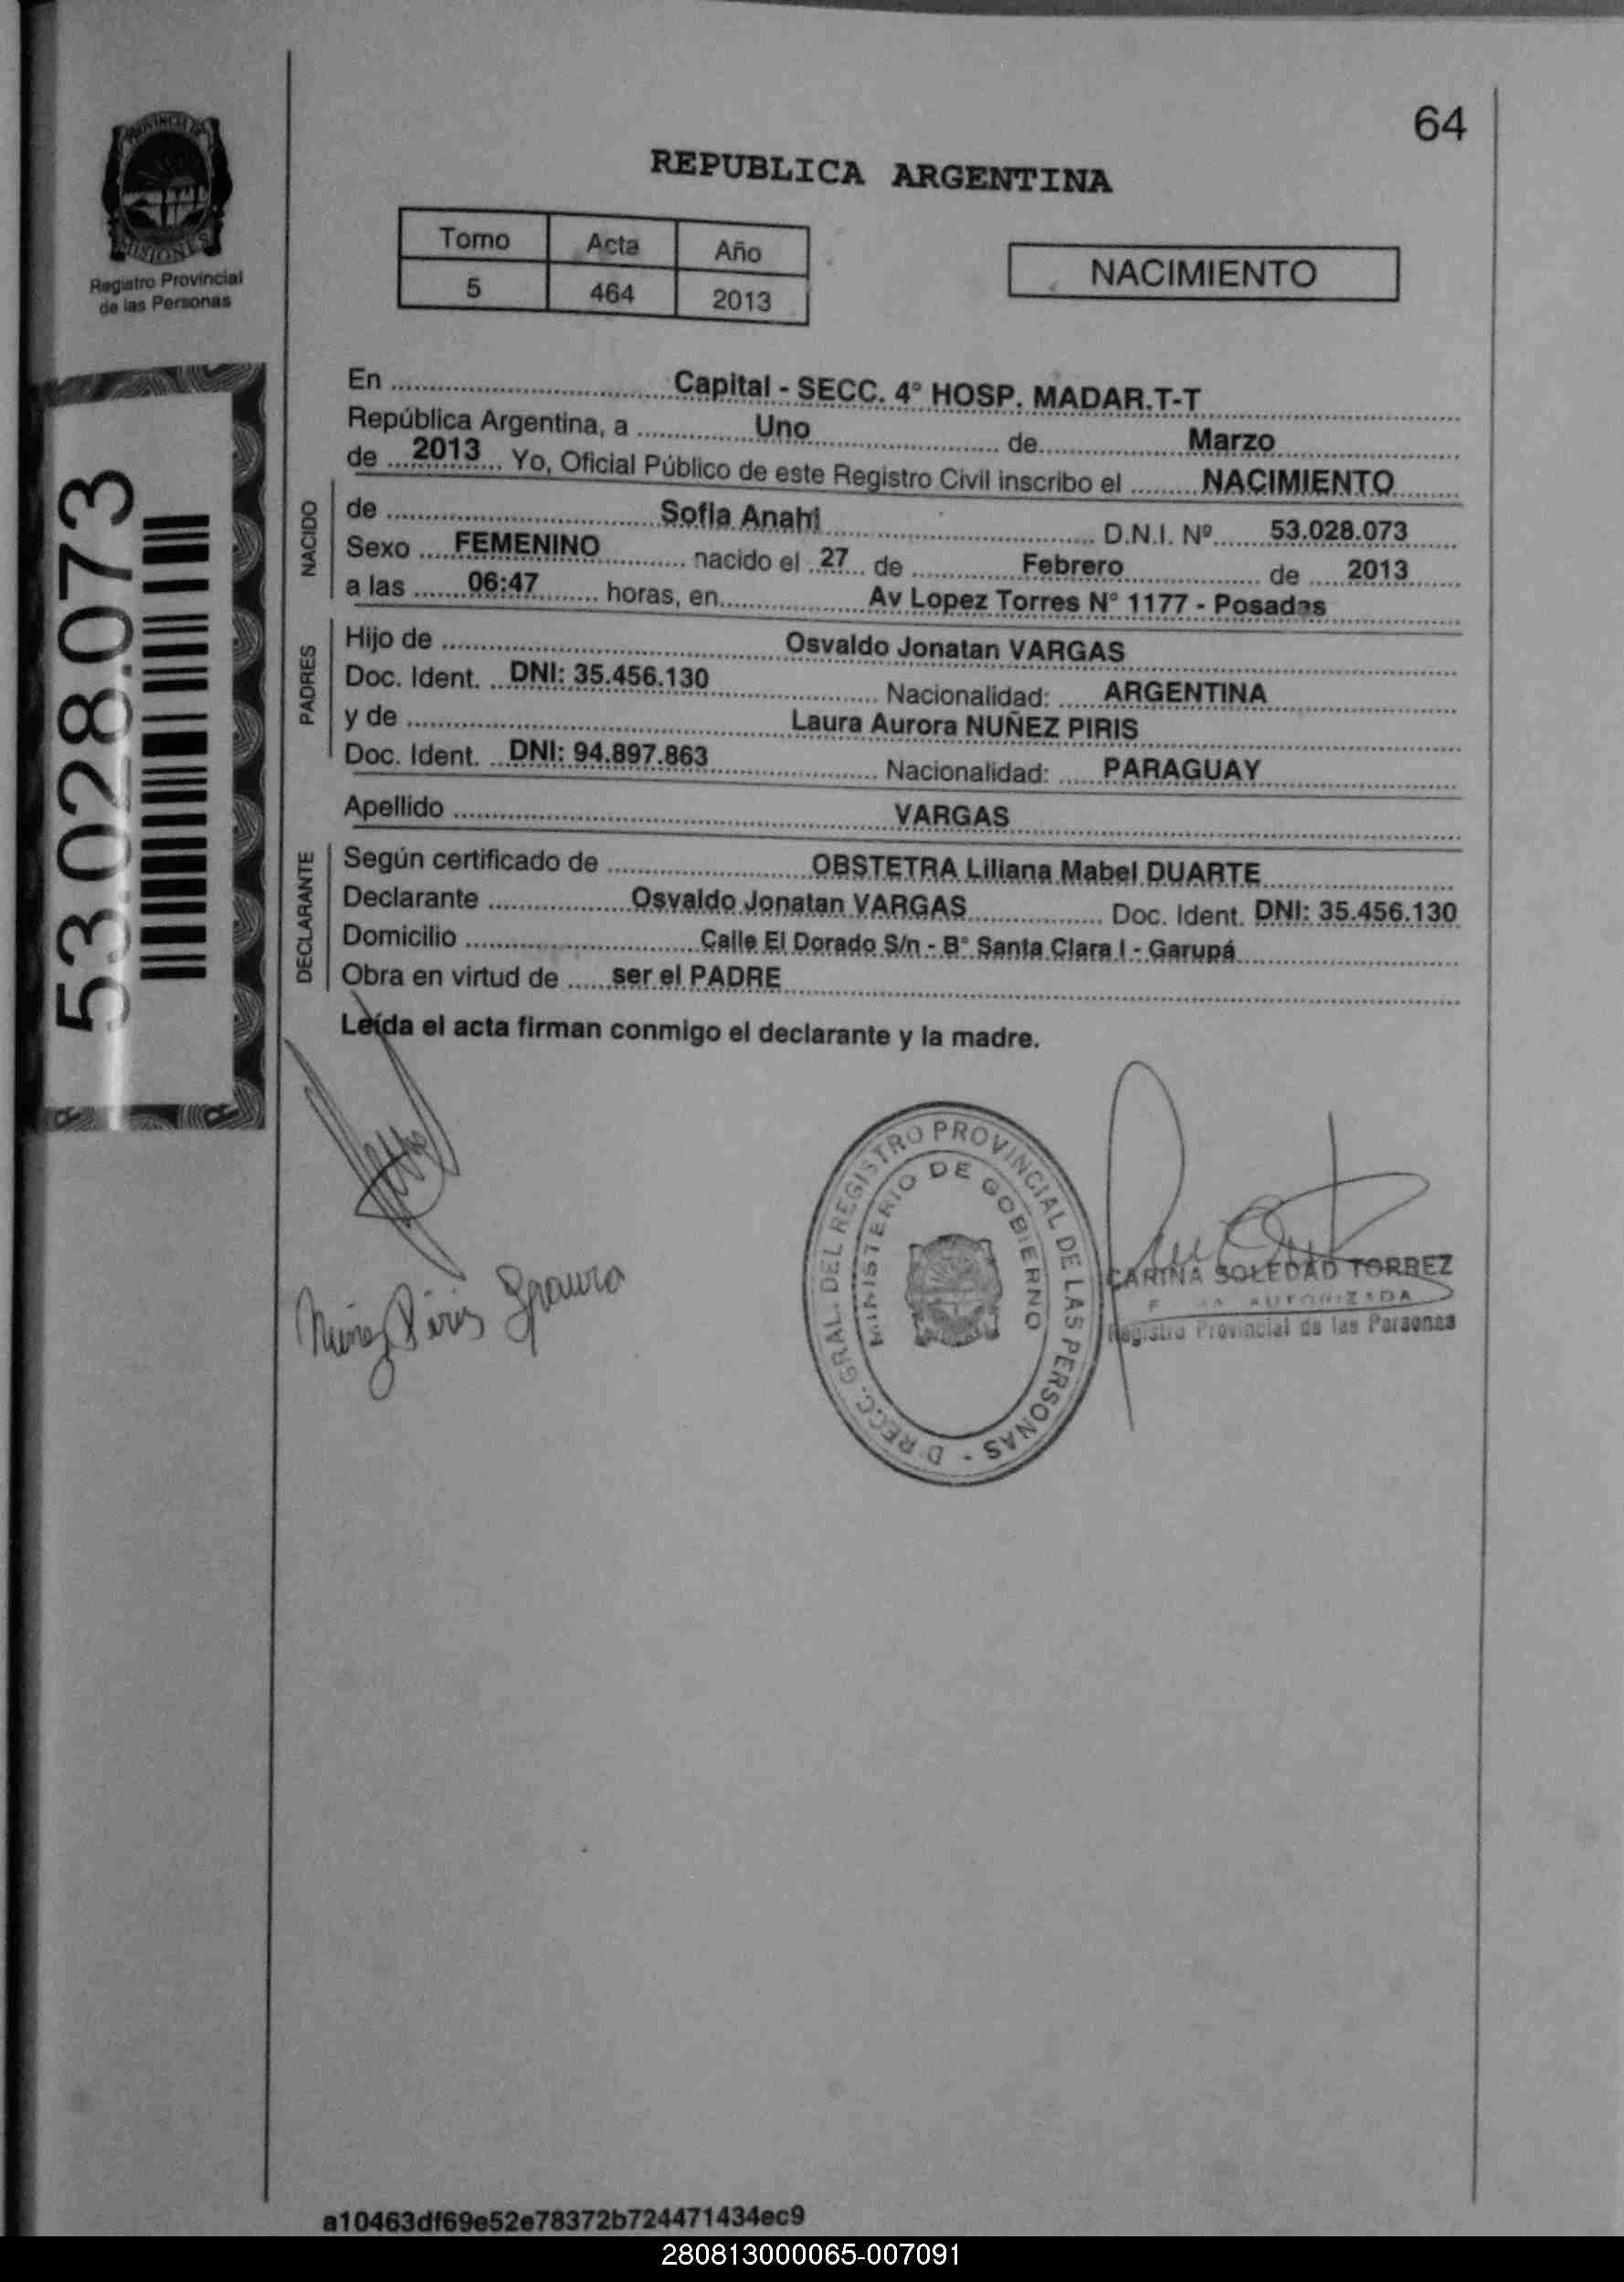 64
REPUBLICA ARGENTINA
PROVINCIA DE
MISIONES
Registro Provincial
de las Personas
Tomo Acta Año
5 464 2013
NACIMIENTO
53.028.073
En Capital - SECC. 4° HOSP. MADAR.T-T
República Argentina, a Uno de Marzo
de 2013 Yo, Oficial Público de este Registro Civil inscribo el NACIMIENTO
NACIDO
de Sofia Anahi D.N.I. Nº 53.028.073
Sexo FEMENINO nacido el 27 de Febrero de 2013
a las 06:47 horas, en Av Lopez Torres N° 1177 - Posadas
PADRES
Hijo de Osvaldo Jonatan VARGAS
Doc. Ident. DNI: 35.456.130 Nacionalidad: ARGENTINA
y de Laura Aurora NUÑEZ PIRIS
Doc. Ident. DNI: 94.897.863 Nacionalidad: PARAGUAY
Apellido VARGAS
DECLARANTE
Según certificado de OBSTETRA Liliana Mabel DUARTE
Declarante Osvaldo Jonatan VARGAS Doc. Ident. DNI: 35.456.130
Domicilio Calle El Dorado S/n - B° Santa Clara I - Garupá
Obra en virtud de ser el PADRE
Leída el acta firman conmigo el declarante y la madre.
Nuñez Piris
DIRECC. GRAL. DEL REGISTRO PROVINCIAL DE LAS PERSONAS -
MINISTERIO DE GOBIERNO
CARINA SOLEDAD TORREZ
AUTORIZADA
Registro Provincial de las Personas
a10463df69e52e78372b724471434ec9
280813000065-007091